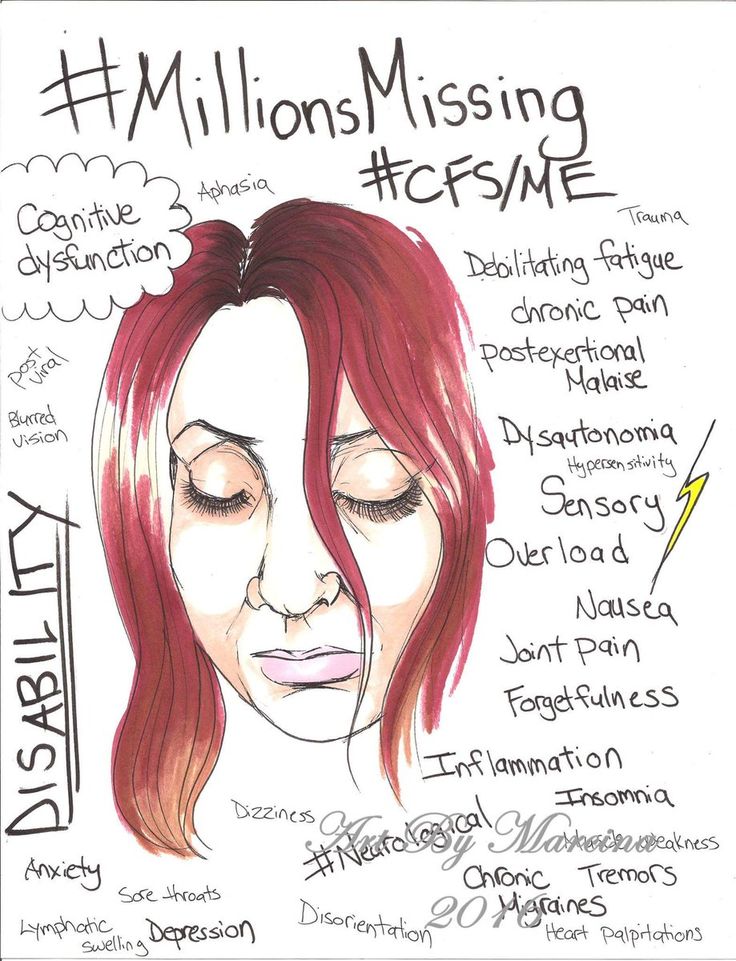 #MillionsMissing
#CFS/ME
Aphasia
Cognitive
dysfunction
Trauma
Debilitating fatigue
chronic pain
post-exertional
Malaise
post
viral
Blurred
vision
Dysautonomia
Hypersensitivity
Sensory
Overload
DISABILITY
Nausea
Joint pain
Forgetfulness
Inflammation
Insomnia
Dizziness
#Neurological
Art By Marina
Muscle weakness
Anxiety
Sore throats
Chronic
Migraines
Tremors
Lymphatic
swelling
Depression
Disorientation
2016
Heart palpitations